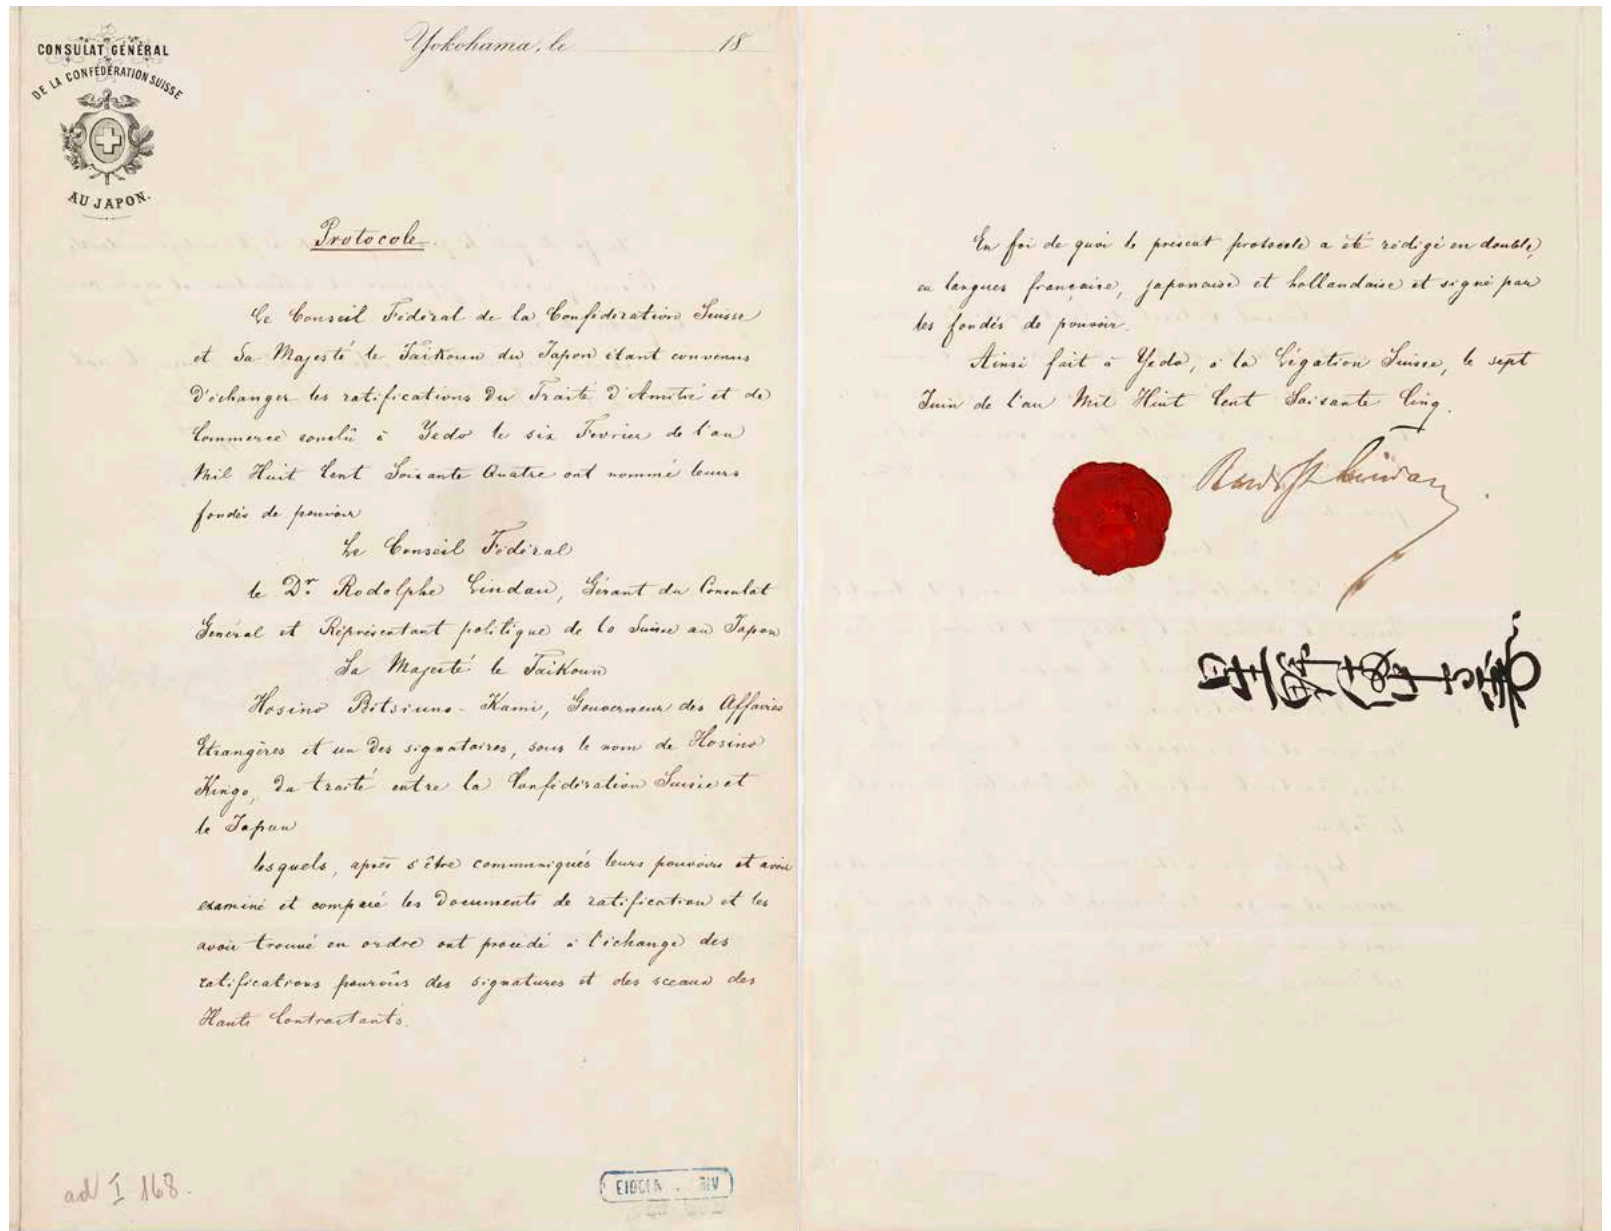 CONSULAT GÉNÉRAL
DE LA CONFÉDÉRATION SUISSE
AU JAPON.
Yokohama, le 18
Protocole.
Le Conseil Fédéral de la Confédération Suisse
et Sa Majesté le Taïkoun du Japon étant convenus
d'échanger les ratifications du Traité d'Amitié et de
Commerce conclû à Yedo le six Fevrier de l'an
Mil Huit Cent Soixante Quatre ont nommé leurs
fondés de pouvoir
Le Conseil Fédéral
le Dr. Rodolphe Lindau, Gérant du Consulat
Général et Réprésentant politique de la Suisse au Japon
Sa Majesté le Taïkoun
Hosino Bitsiuno-Kami, Gouverneur des Affaires
Etrangères et un des signataires, sous le nom de Hosino
Kingo, du traité entre la Confédération Suisse et
le Japon
lesquels, après s'être communiqués leurs pouvoirs et avoir
examiné et comparé les documents de ratification et les
avoir trouvé en ordre ont procédé à l'échange des
ratifications pourvûs des signatures et des sceaux des
Hauts Contractants.
ad I 168.
En foi de quoi le présent protocole a été rédigé en double,
en langues française, japonaise et hollandaise et signé par
les fondés de pouvoir.
Ainsi fait à Yedo, à la Légation Suisse, le sept
Juin de l'an Mil Huit Cent Soixante Cinq.
Rud Lindau
星野備中守